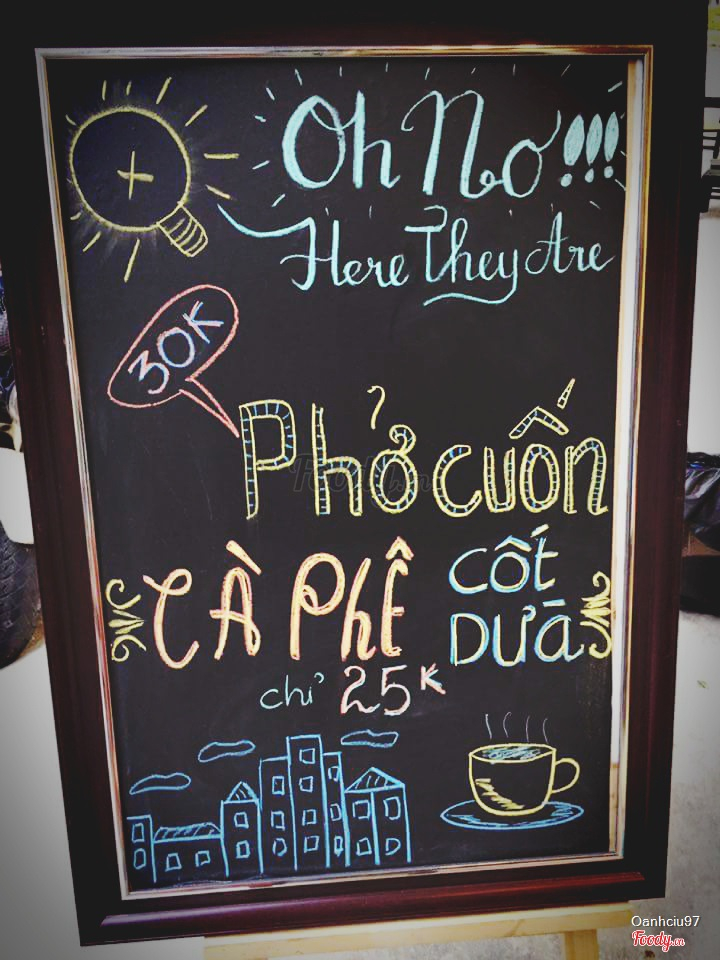 Oh No !!!
Here They Are
30K
Phở cuốn
CÀ PHÊ
CỐT
DỪA
chỉ 25K
Foody.vn
Oanhciu97
Foody.vn